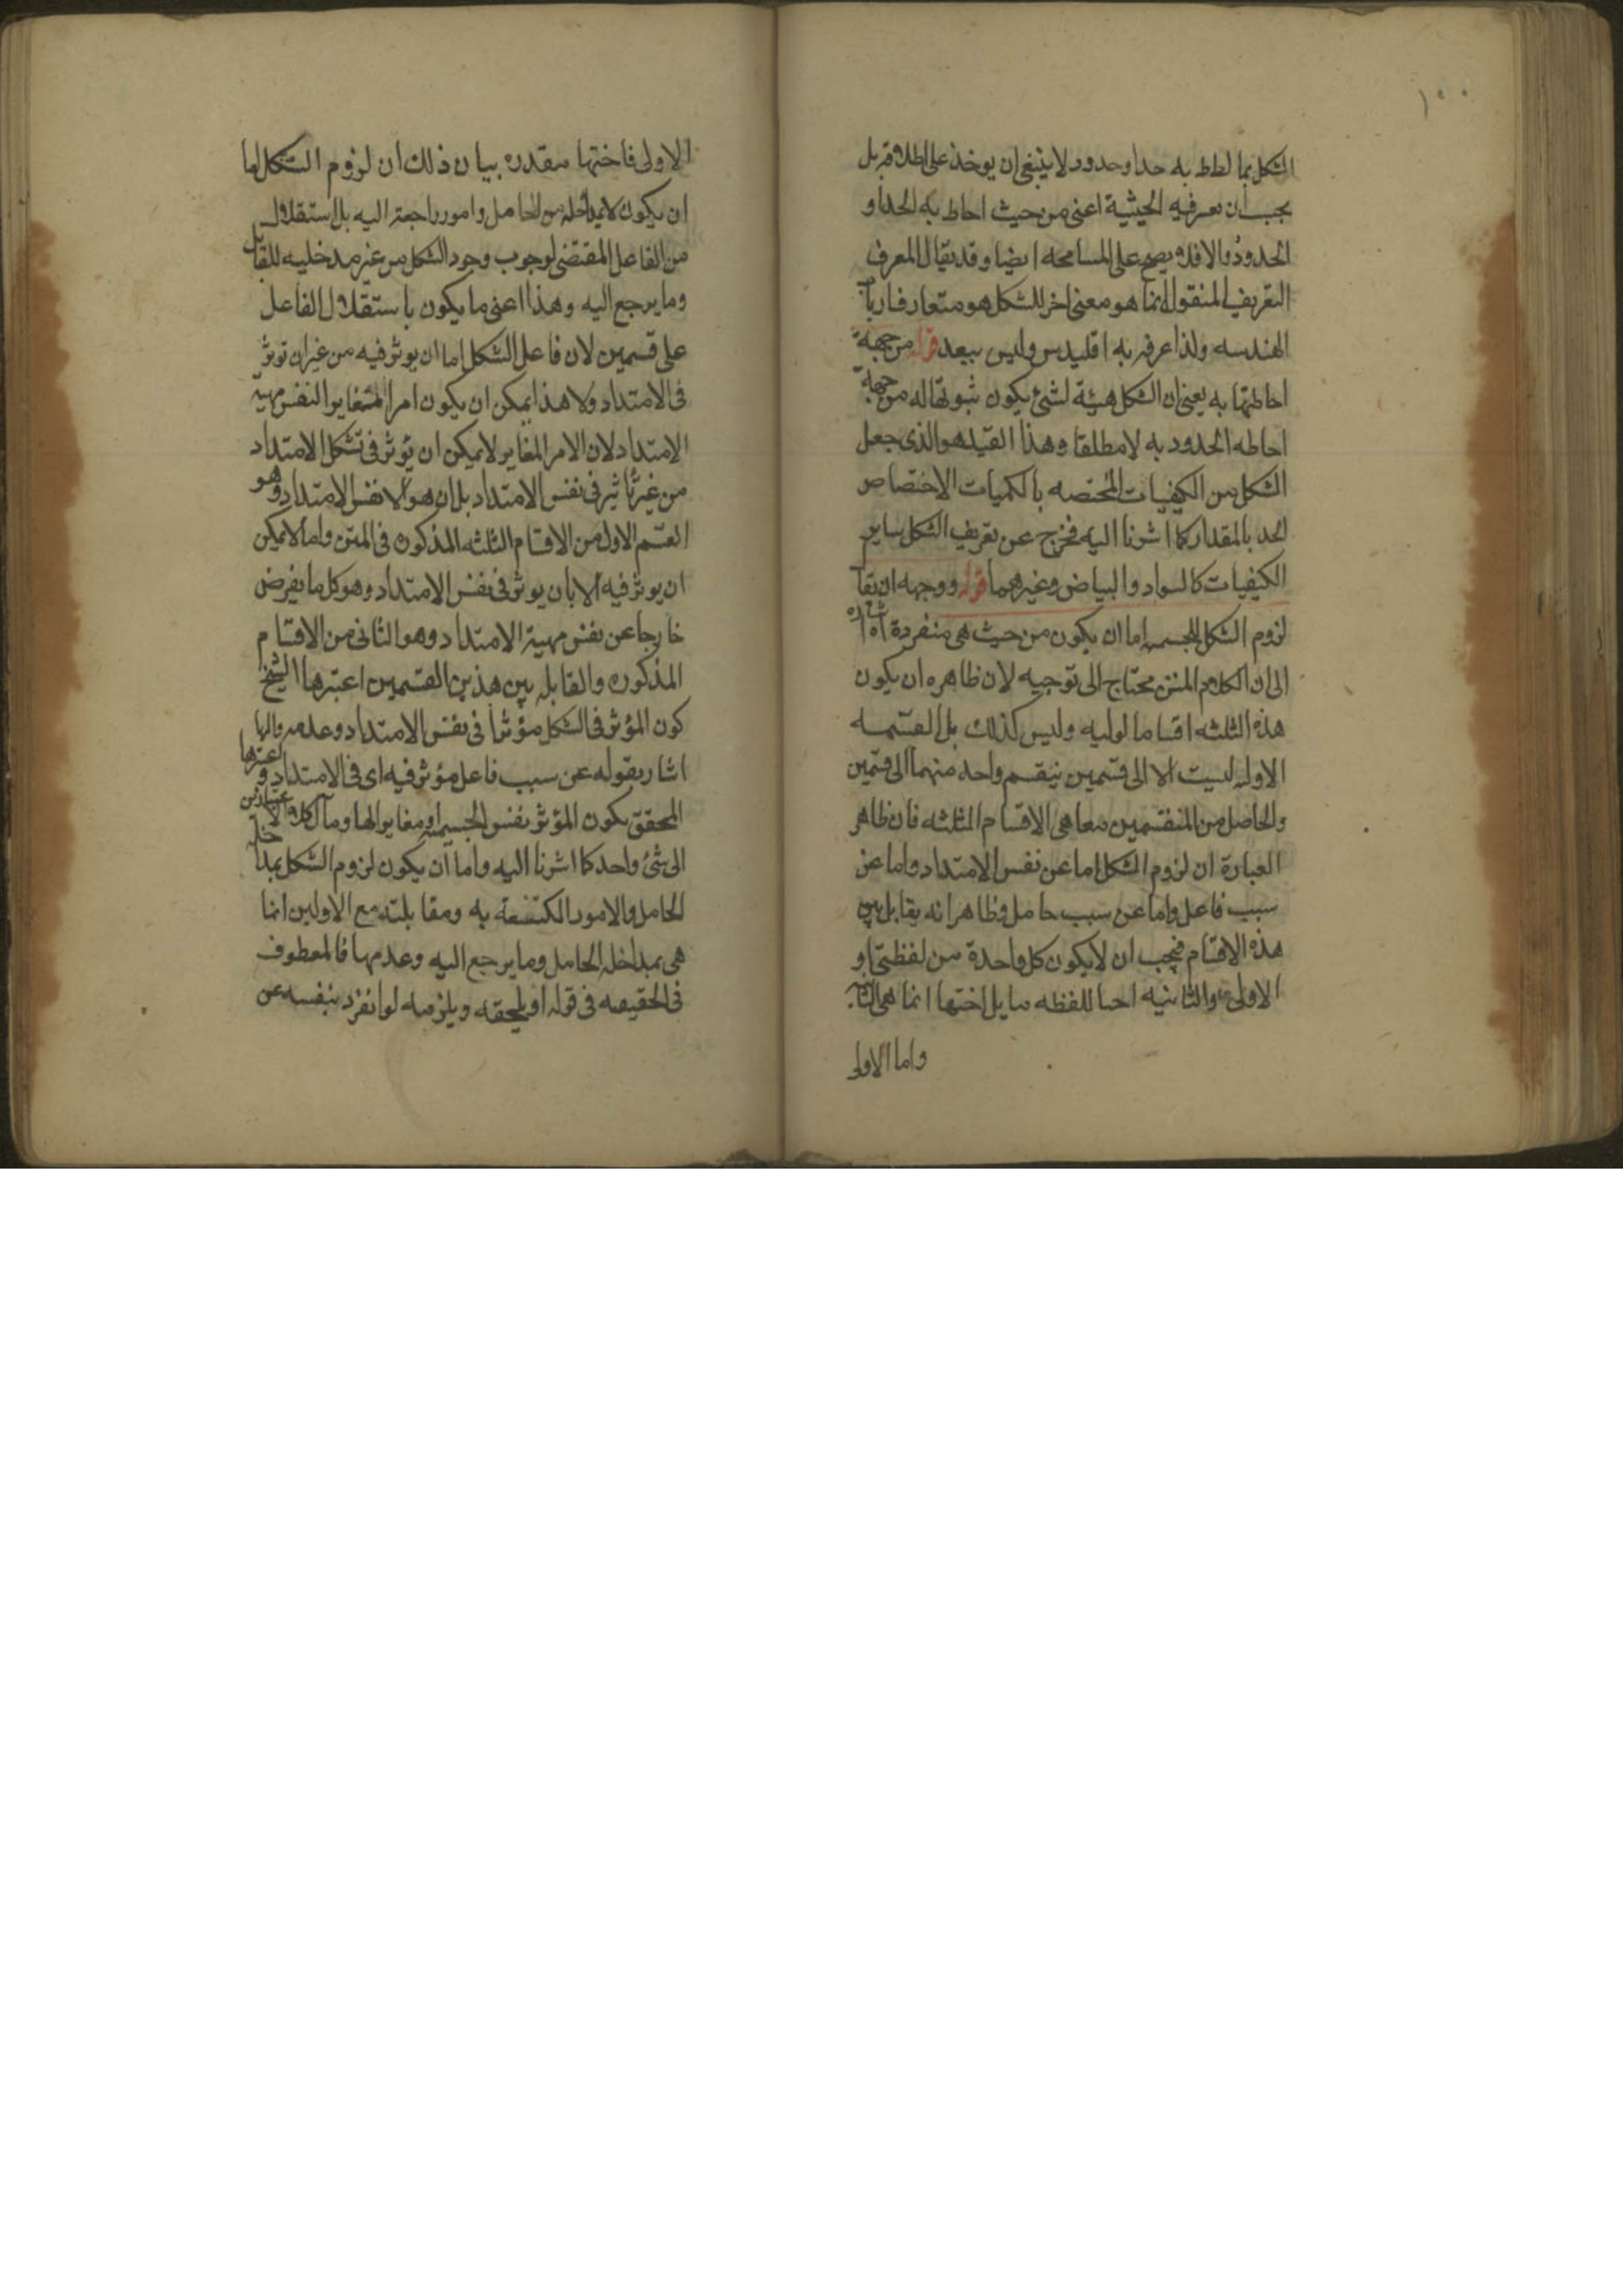 ١٠٠
الشكل بما احاط به حد او حدود لا ينبغى ان يوخذ على اطلاقه بل
يجب ان تعرفيه الحيثية اعنى من حيث احاط به الحد او
الحدود والا فلا يصح على المسامحه ايضا وقد يقال المعرف
التعريف المنقول انما هو معنى اخر للشكل هو متعارف ارباب
الهندسه ولذا عرفه به اقليدس وليس ببعيد قوله من جهة
احاطتها به يعنى ان الشكل هيئة لشئ يكون ثبوتها له من جهة
احاطه الحدود به لا مطلقا وهذا القيد هو الذى جعل
الشكل من الكيفيات المختصه بالكميات لاختصاص
الحد بالمقدار كما اشرنا اليه فخرج عن تعريف الشكل ساير
الكيفيات كالسواد والبياض وغيرهما قوله ووجهه ان يقا
لزوم الشكل للجسم اما ان يكون من حيث هى منفردة اه اشاره
الى ان الكلام المتن محتاج الى توجيه لان ظاهره ان يكون
هذه الثلثه اقساما اوليه وليس كذلك بل القسمه
الاوله ليست الا الى قسمين ينقسم واحد منهما الى قسمين
والحاصل من المنقسمين معا هى الاقسام الثلثه فان ظاهر
العبارة ان لزوم الشكل اما عن نفس الامتداد واما عن
سبب فاعل واما عن سبب حامل وظاهر انه يقابل بين
هذه الاقسام فيجب ان لا يكون كل واحدة من لفظتى او
الاولى والثانيه احدا للفظه ما يل اختها انما هى الثانيه
واما الاولى
الاولى فاختها مقدره بيان ذلك ان لزوم الشكل اما
ان يكون لا بمداخله من الحامل وامور راجعة اليه بل استقلال
من الفاعل المقتضى لوجوب وجود الشكل من غير مدخليه للقابل
وما يرجع اليه وهذا اعنى ما يكون باستقلال الفاعل
على قسمين لان فاعل الشكل اما ان يوثر فيه من غير ان توثر
فى الامتداد ولا هذا يمكن ان يكون امرا مغايرا لنفس مهية
الامتداد لان الامر المغاير لا يمكن ان يؤثر فى تشكل الامتداد
من غير تاثير فى نفس الامتداد بل ان هو الا نفس الامتداد وهو
القسم الاول من الاقسام الثلثه المذكوره فى المتن واما لا يمكن
ان يوثر فيه الا بان يوثر فى نفس الامتداد وهو كل ما يفرض
خارجا عن نفس مهية الامتداد وهو الثانى من الاقسام
المذكوره والقابله بين هذين القسمين اعتبرها الشيخ
كون المؤثر فى الشكل مؤثرا فى نفس الامتداد وعدمه والها
اشار بقوله عن سبب فاعل مؤثر فيه اى فى الامتداد واعتبرها
المحقق بكون المؤثر نفس الجسميه او مغايرا لها ومآل كلا الاعتبارين
الى شئ واحد كما اشرنا اليه واما ان يكون لزوم الشكل بمداخله
الحامل والامور المكتنفة به ومقابلته مع الاولين انما
هى بمداخله الحامل وما يرجع اليه وعدمها فالمعطوف
فى الحقيقه فى قوله او يلحقه ويلزمه لو انفرد بنفسه عن